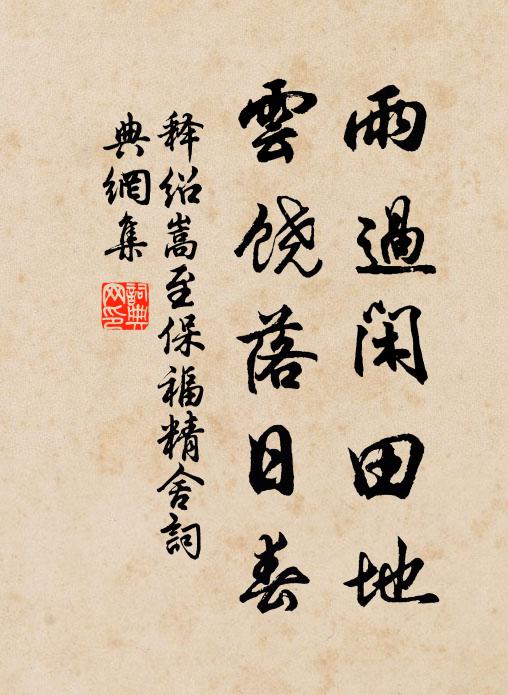 雨過閑田地
雲饶落日春
释绍嵩至保福精舍詞
典網集
詞典
网印